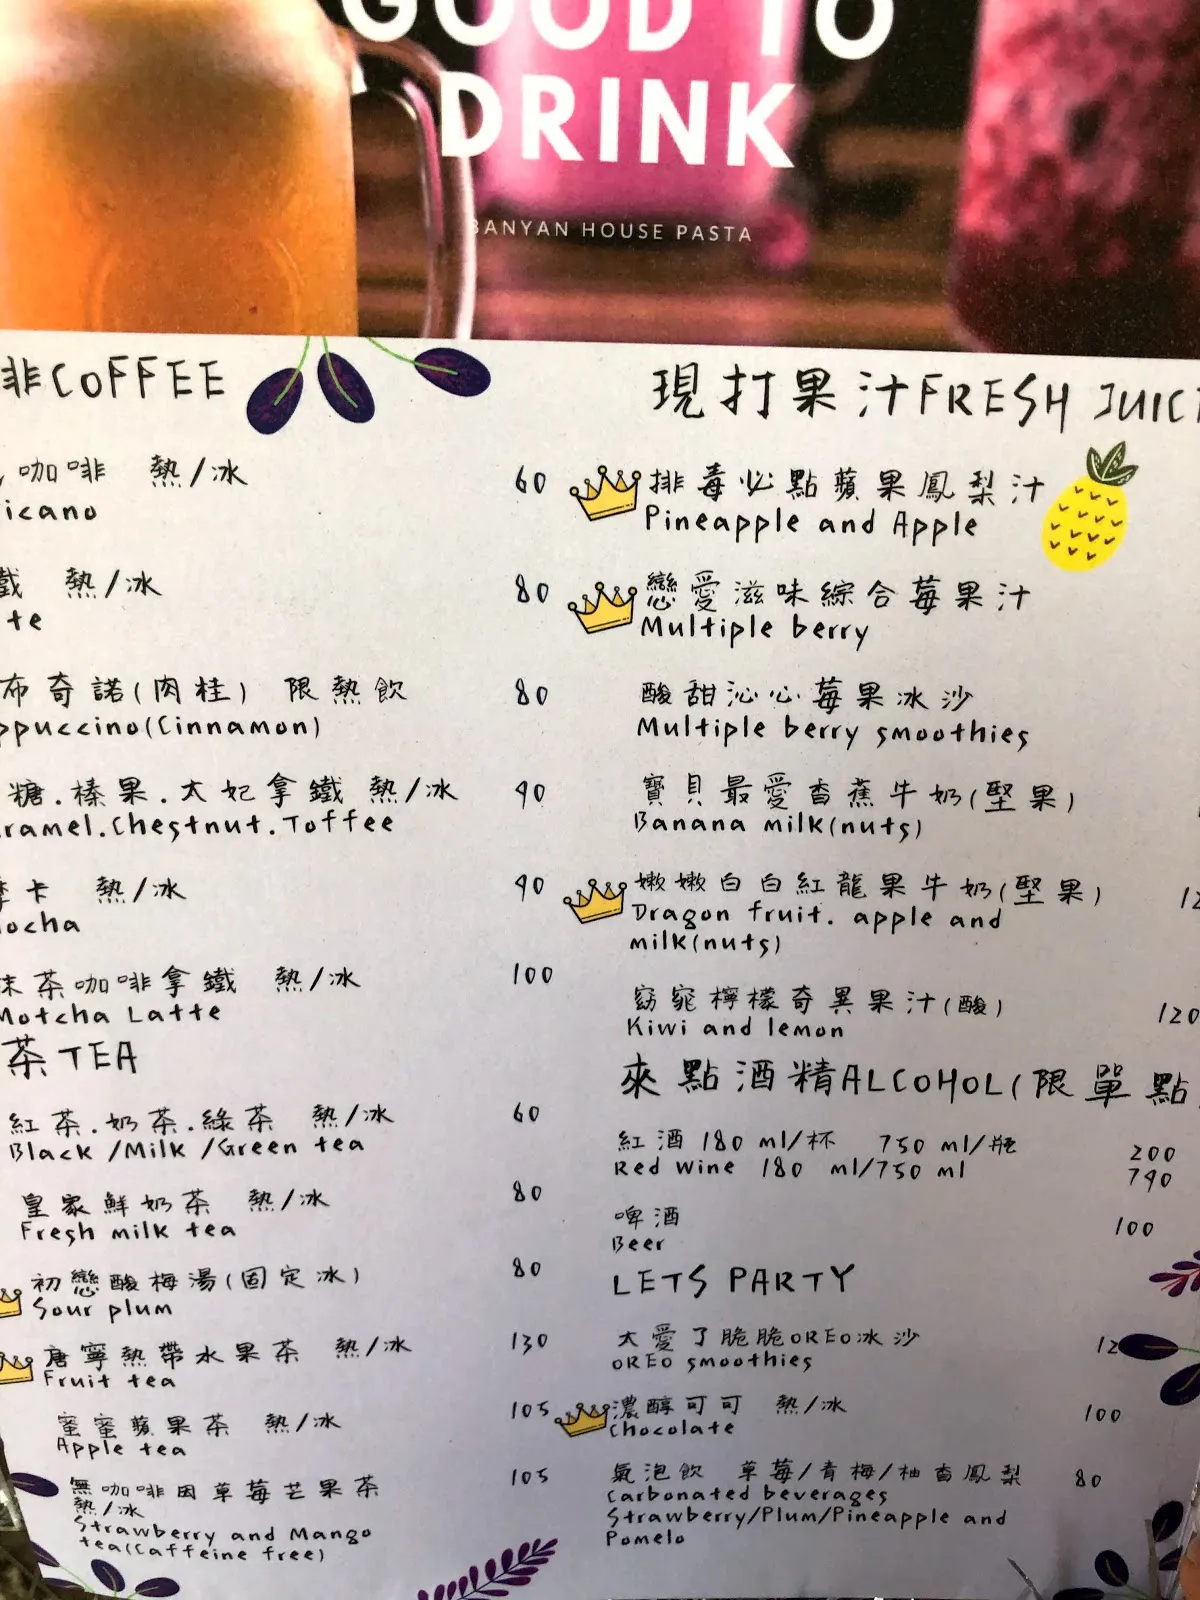 GOOD TO
DRINK
BANYAN HOUSE PASTA
啡COFFEE
咖啡 熱/冰 60
icano
鐵 熱/冰 80
te
布奇諾(肉桂) 限熱飲 80
ppuccino(Cinnamon)
糖.榛果.太妃拿鐵 熱/冰 90
ramel.Chestnut.Toffee
摩卡 熱/冰 90
ocha
抹茶咖啡拿鐵 熱/冰 100
Motcha Latte
茶TEA
紅茶.奶茶.綠茶 熱/冰 60
Black /Milk /Green tea
皇家鮮奶茶 熱/冰 80
Fresh milk tea
初戀酸梅湯(固定冰) 80
Sour plum
唐寧熱帶水果茶 熱/冰 130
Fruit tea
蜜蜜蘋果茶 熱/冰 105
Apple tea
無咖啡因草莓芒果茶 105
熱/冰
Strawberry and Mango
tea(Caffeine free)
現打果汁FRESH JUIC
排毒必點蘋果鳳梨汁
Pineapple and Apple
戀愛滋味綜合莓果汁
Multiple berry
酸甜沁心莓果冰沙
Multiple berry smoothies
寶貝最愛香蕉牛奶(堅果)
Banana milk(nuts)
嫩嫩白白紅龍果牛奶(堅果) 12
Dragon fruit. apple and
milk(nuts)
窈窕檸檬奇異果汁(酸) 120
Kiwi and lemon
來點酒精ALCOHOL(限單點
紅酒 180 ml/杯 750 ml/瓶 200
Red wine 180 ml/750 ml 790
啤酒 100
Beer
LETS PARTY
太愛了脆脆OREO冰沙 12
OREO smoothies
濃醇可可 熱/冰 100
Chocolate
氣泡飲 草莓/青梅/柚香鳳梨 80
Carbonated beverages
Strawberry/Plum/Pineapple and
Pomelo